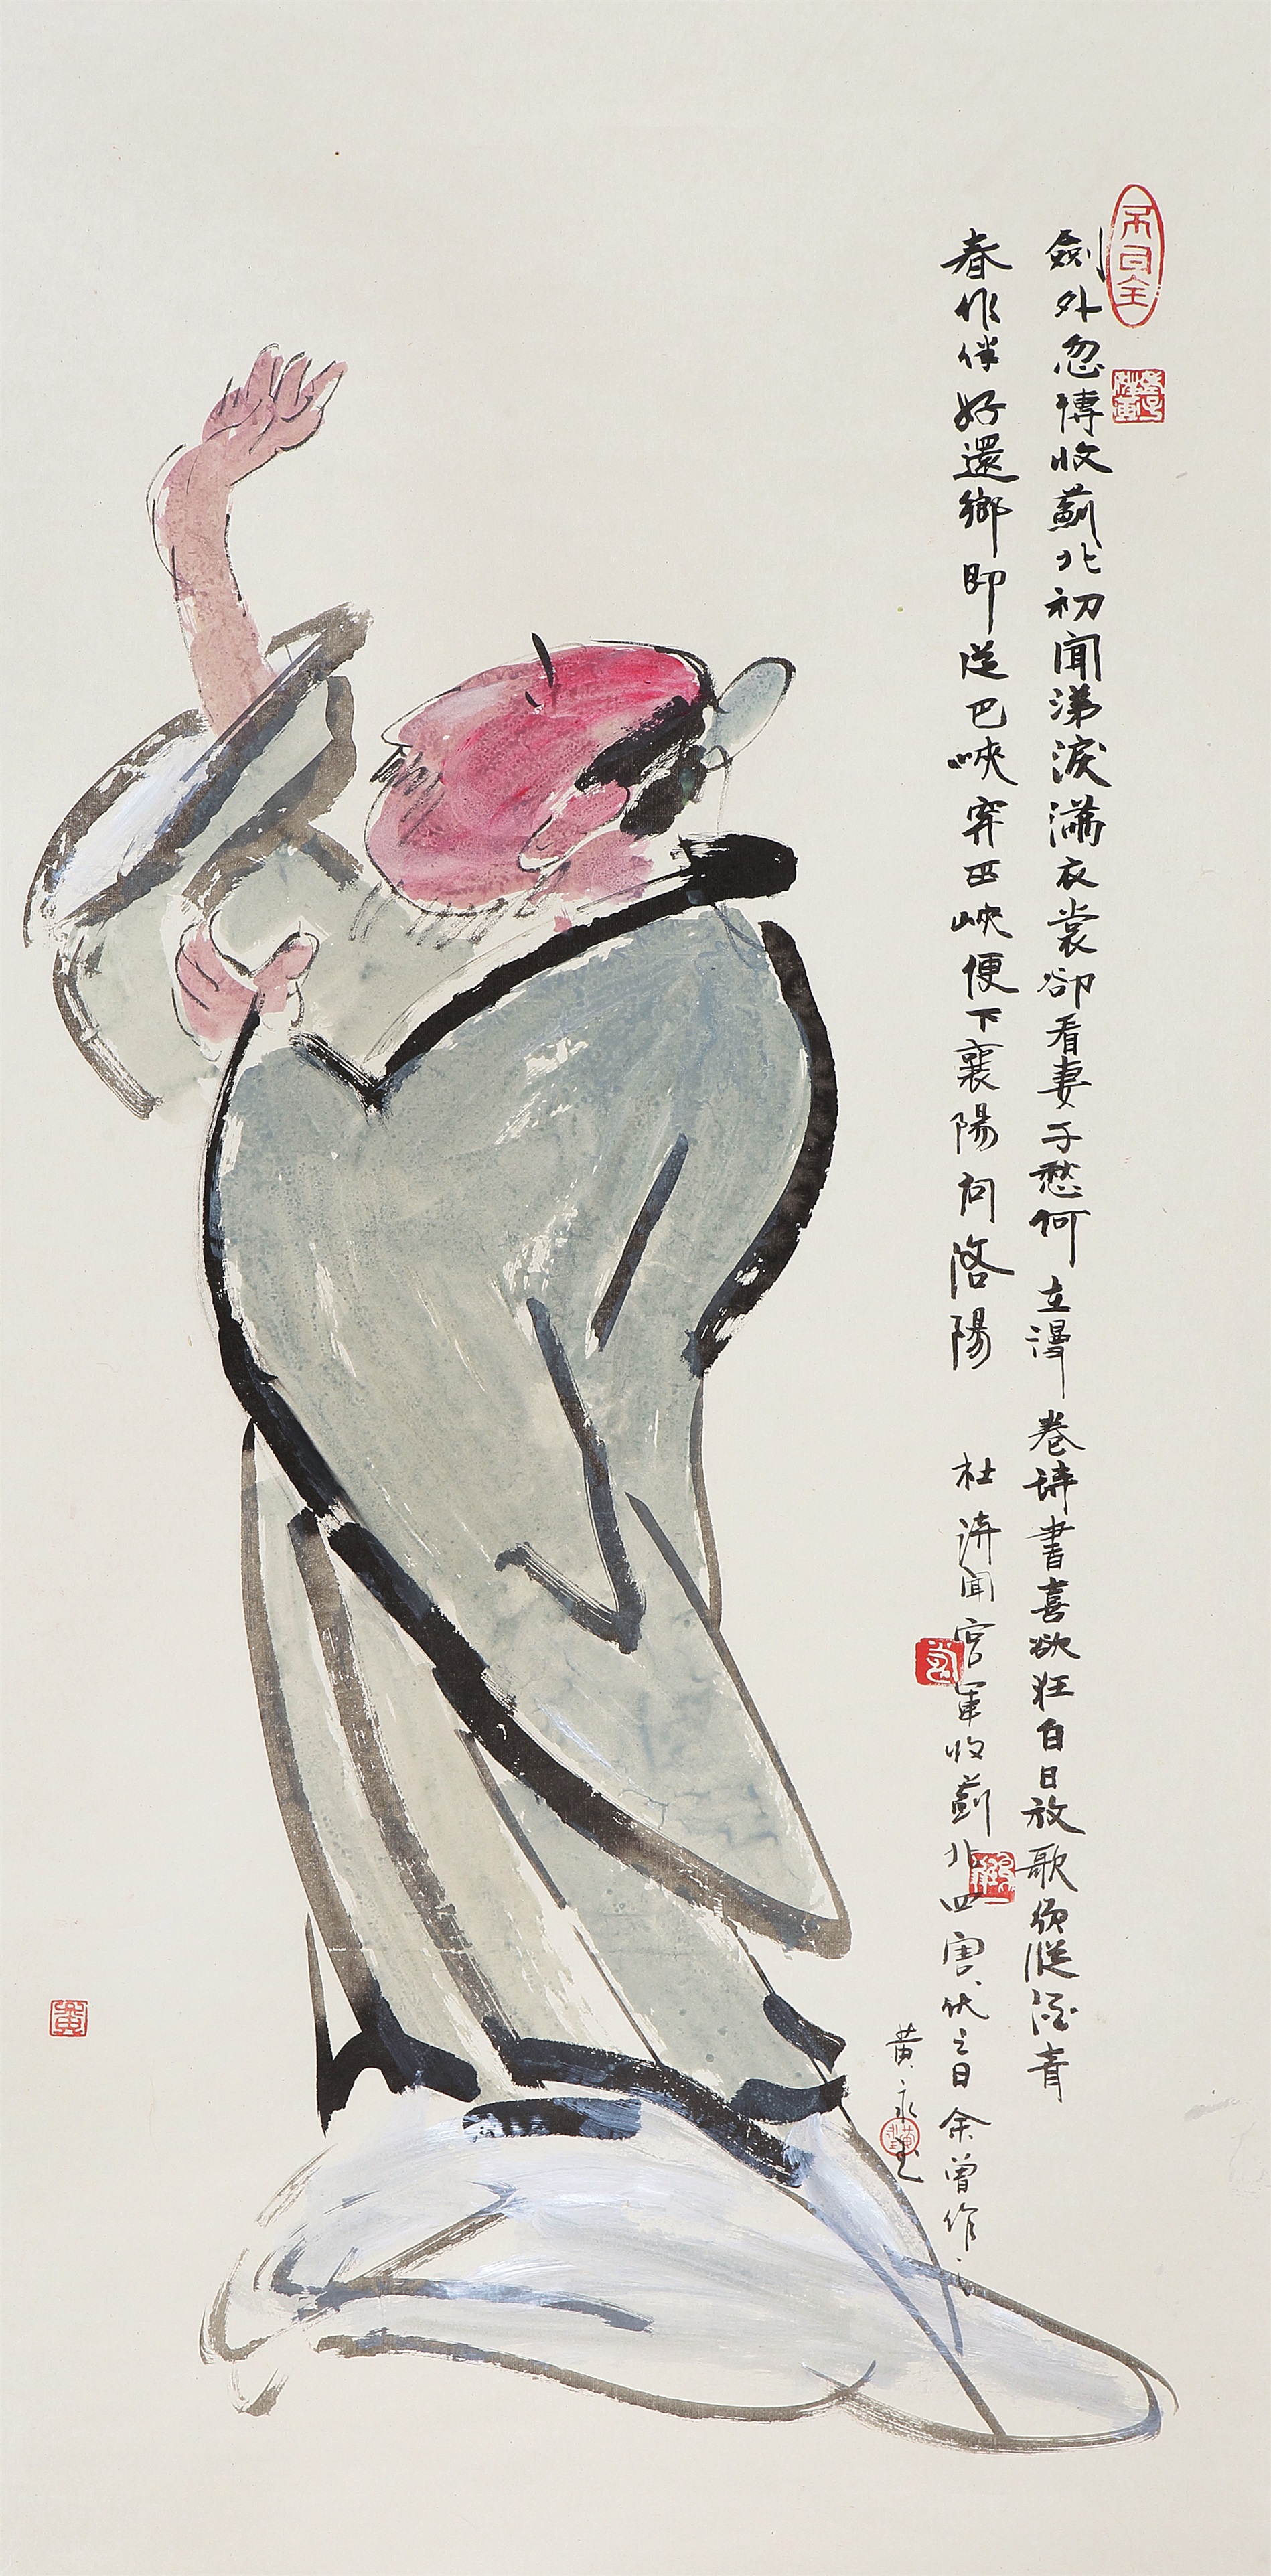 劍外忽傳收薊北初聞涕淚滿衣裳卻看妻子愁何立漫卷詩書喜欲狂白日放歌須縱酒青
春作伴好還鄉即從巴峽穿巫峽便下襄陽向洛陽 杜詩聞官軍收薊北四害伏之日余曾作之
黃永玉
黃